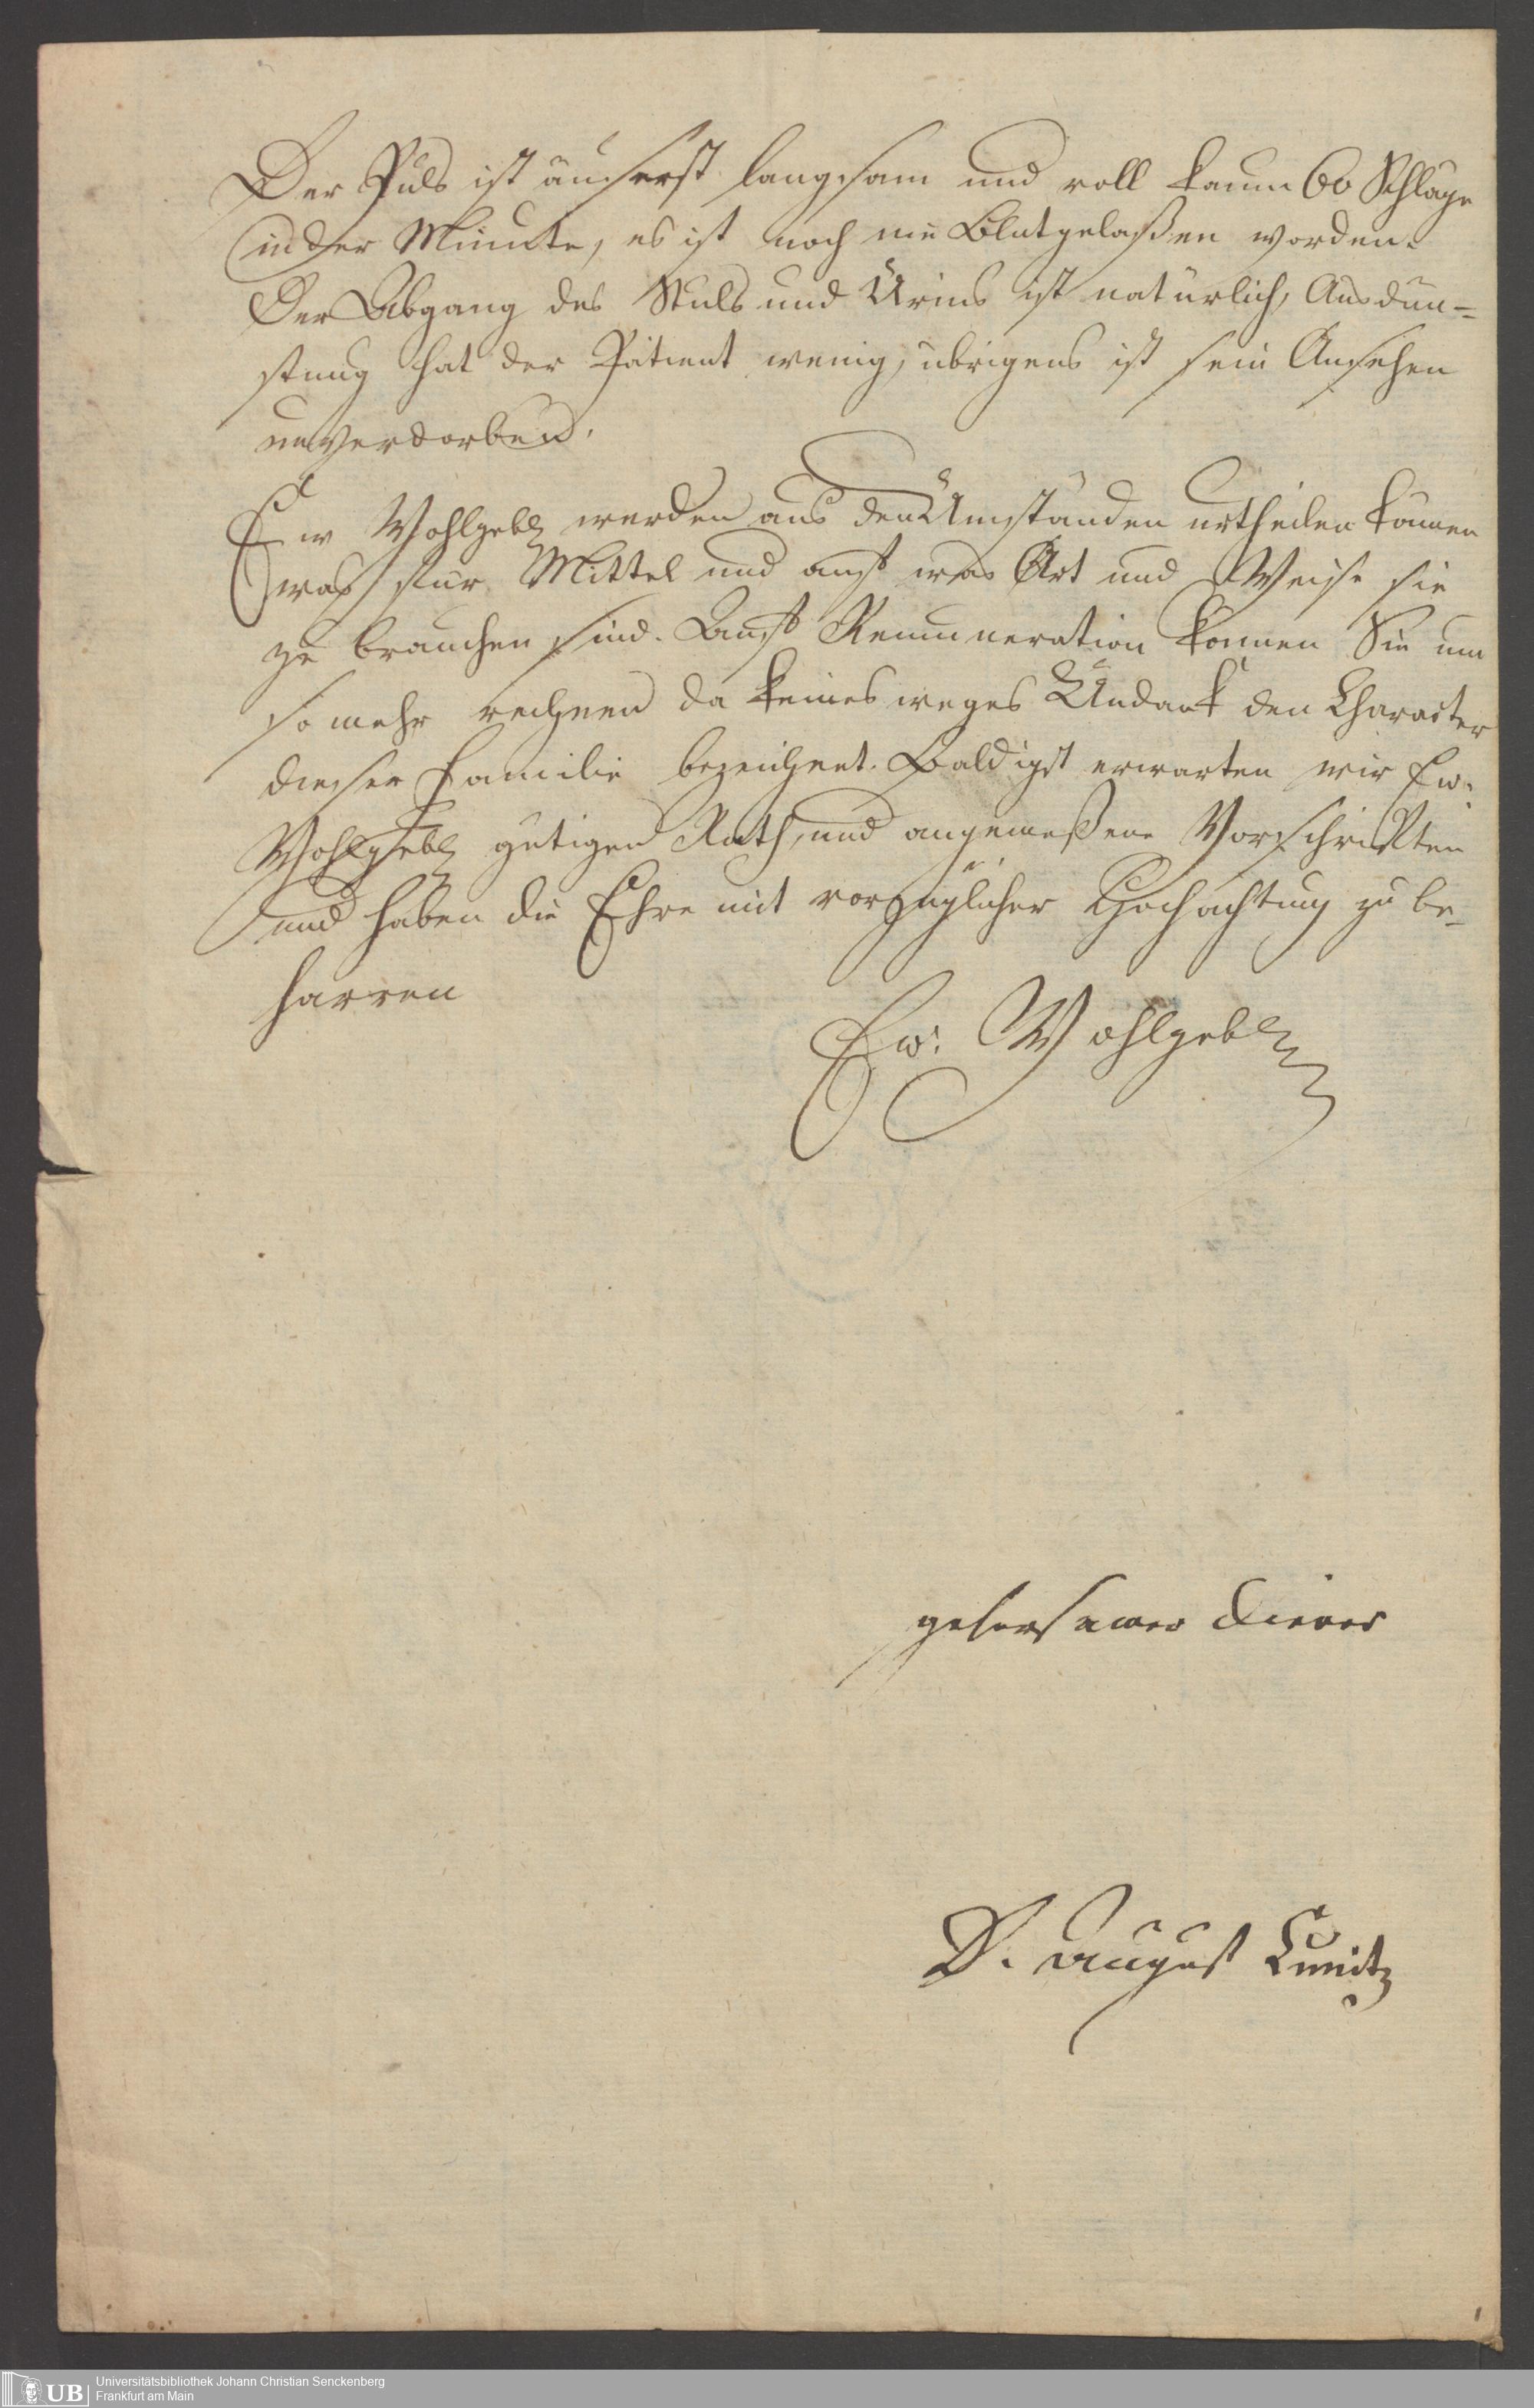 Der Puls ist äuserst langsam und voll kaum 60 Schläge
in der Minute, es ist noch nie Blutgelaßen worden.
Der Abgang des Stuls und Urins ist natürlich, Ausdün=
stung hat der Patient wenig, übrigens ist sein Ansehen
unverdorben.
Ew Wohlgeb werden aus den Umständen urtheilen können
was für Mittel und auf was Art und Weise sie
zu brauchen sind. Auf Remuneration können Sie um
so mehr rechnen da keines weges Undank den Character
dieser Familie bezeichnet. Baldigst erwarten wir Ew.
Wohlgeb gütigen Rath, und angemeßene Vorschriften
und haben die Ehre mit vorzüglicher Hochachtung zu be-
harren
Ew. Wohlgeb
gehorsamer Diener
D. August Kunitz
UB
Universitätsbibliothek Johann Christian Senckenberg
Frankfurt am Main